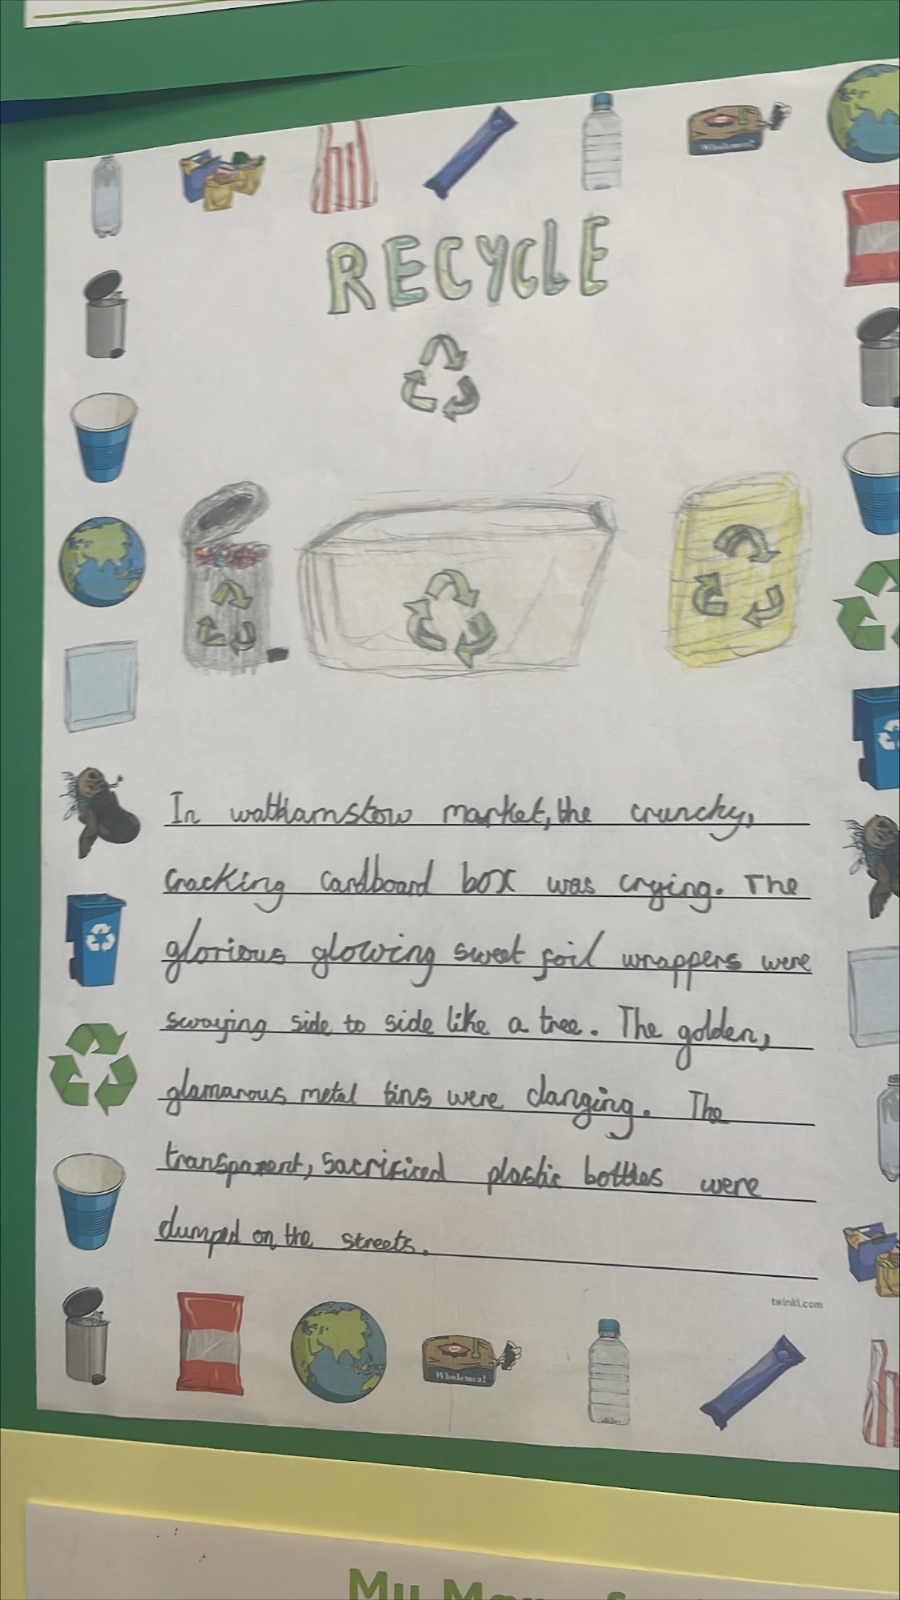 Wholemeal
RECYCLE
In walthamstow market, the crunchy,
cracking cardboard box was crying. The
glorious glowing sweet foil wrappers were
swaying side to side like a tree. The golden,
glamarous metal tins were clanging. The
transparent, sacrificed plastic bottles were
dumped on the streets.
twinkl.com
Wholemeal
My